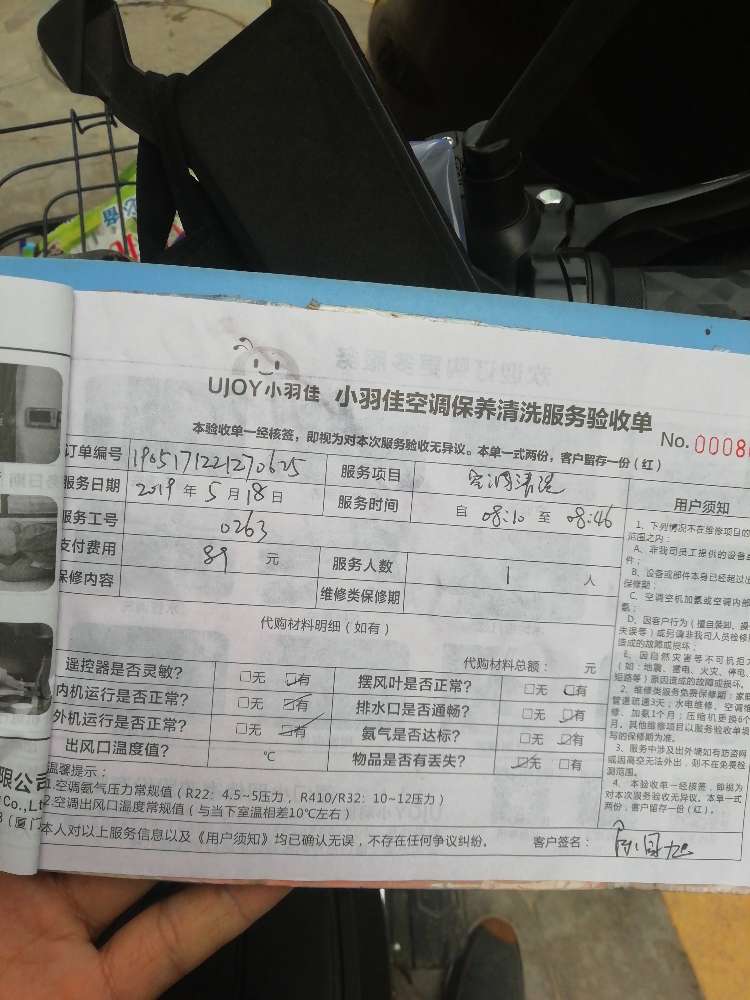 UJOY小羽佳 小羽佳空调保养清洗服务验收单
本验收单一经核签，即视为对本次服务验收无异议。本单一式两份，客户留存一份（红）
No. 0008
订单编号 1905171221270625 服务项目 空调清洗
服务日期 2019 年 5 月 18 日 服务时间 自 08:10 至 08:46
服务工号 0263
支付费用 89 元 服务人数 1 人
保修内容 维修类保修期
代购材料明细（如有）
代购材料总额： 元
遥控器是否灵敏？ □无 □有 摆风叶是否正常？ □无 □有
内机运行是否正常？ □无 □有 排水口是否通畅？ □无 □有
外机运行是否正常？ □无 □有 氨气是否达标？ □无 □有
出风口温度值？ ℃ 物品是否有丢失？ □无 □有
温馨提示：
1.空调氨气压力常规值（R22：4.5~5压力，R410/R32：10~12压力）
2.空调出风口温度常规值（与当下室温相差10℃左右）
本人对以上服务信息以及《用户须知》均已确认无误，不存在任何争议纠纷。 客户签名：
用户须知
1、下列情况不在维修项目的
范围之内：
A、非我司员工提供的设备
件；
B、设备或部件本身已经超过
保修期；
C、空调空机加氨或空调内部
氨；
D、因客户行为（擅自装卸、
失误等）或另请非我司人员检修
造成的故障或损坏；
E、因自然灾害等不可抗拒
（如：地震、雷电、火灾、停电、
短路等）原因造成的故障或损坏。
2、维修类服务免费保修期：家庭
管道疏通3天；水电维修、空调维
修、加氨1个月；压缩机更换6个
月。其他维修项目以服务验收单填
写的保修期为准。
3、服务中涉及出外墙如有防盗网
或因高空无法外出，则不在免费检
测范围。
4、本验收单一经核签，即视为
对本次服务验收无异议。本单一式
两份，客户留存一份（红）。
限公司
Co.,Lt
（厦门